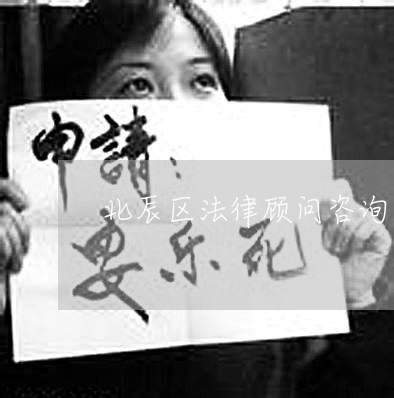 申請：
北辰区法律顾问咨询
安乐死